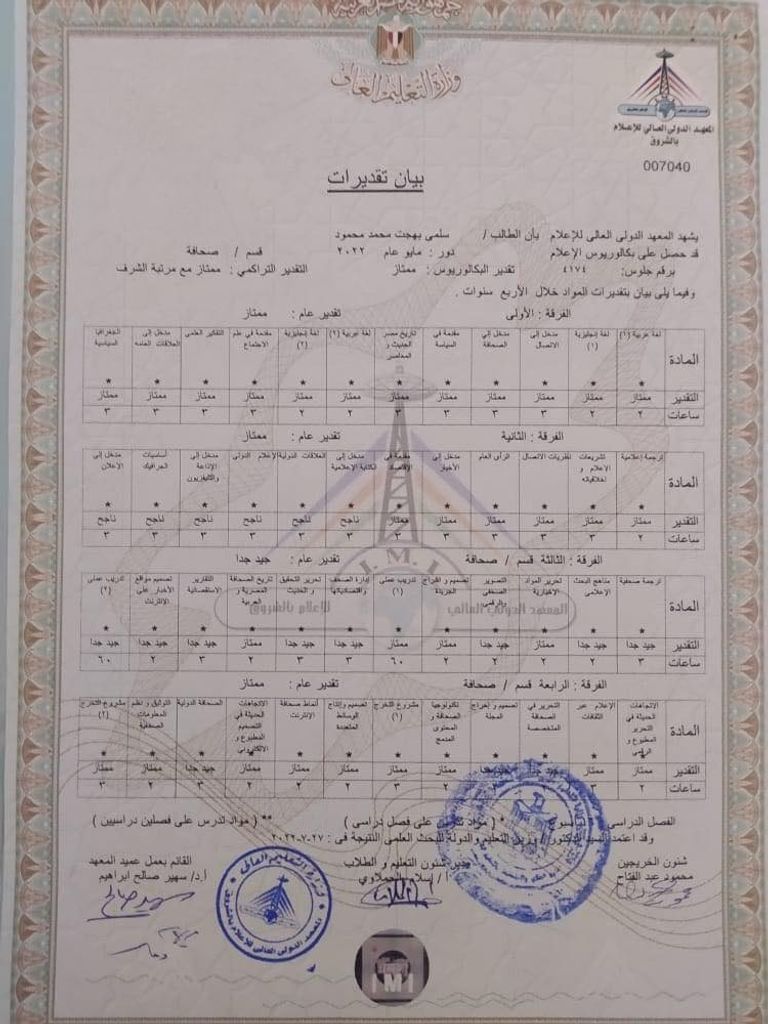 جمهورية مصر العربية
وزارة التعليم العالى
المعهد الدولى العالى للإعلام
بالشروق
007040
بيان تقديرات
يشهد المعهد الدولى العالى للإعلام بأن الطالب / سلمى بهجت محمد محمود
قد حصل على بكالوريوس الإعلام دور : مايو عام ٢٠٢٢ قسم / صحافة
برقم جلوس: ٤١٧٤ تقدير البكالوريوس : ممتاز التقدير التراكمي : ممتاز مع مرتبة الشرف
وفيما يلى بيان بتقديرات المواد خلال الأربع سنوات .
الفرقة : الأولى تقدير عام : ممتاز
المادة لغة عربية (١) لغة إنجليزية (١) مدخل إلى الاتصال مدخل إلى الصحافة مقدمة في السياسة تاريخ مصر الحديث و المعاصر لغة عربية (٢) لغة إنجليزية (٢) مقدمة في علم الاجتماع التفكير العلمى مدخل إلى العلاقات العامه الجغرافيا السياسية
* * * * * * * * * * * *
التقدير ممتاز ممتاز ممتاز ممتاز ممتاز ممتاز ممتاز ممتاز ممتاز ممتاز ممتاز ممتاز
ساعات ٢ ٢ ٣ ٣ ٣ ٣ ٢ ٢ ٣ ٣ ٣ ٣
الفرقة : الثانية تقدير عام : ممتاز
المادة ترجمة إعلامية تشريعات الاعلام و أخلاقياته نظريات الاتصال الرأى العام مدخل إلى الأخبار مقدمة في الإقتصاد مدخل إلى الكتابة الإعلامية العلاقات الدولية الإعلام الدولى مدخل إلى الإذاعة والتليفزيون أساسيات الجرافيك مدخل إلى الإعلان
* * * * * * * * * * * *
التقدير ممتاز ممتاز ممتاز ممتاز ممتاز ممتاز ناجح ناجح ناجح ناجح ناجح ناجح
ساعات ٢ ٣ ٣ ٣ ٣ ٣ ٣ ٣ ٣ ٣ ٣ ٣
الفرقة : الثالثة قسم / صحافة تقدير عام : جيد جدا
المادة ترجمة صحفية مناهج البحث الإعلامى تحرير المواد الإخبارية التصوير الصحفى والرقمى تصميم و إخراج الجريدة تدريب عملى (١) إدارة الصحف واقتصادياتها تحرير التحقيق و الحديث تاريخ الصحافة المصرية و العربية التقارير الاستقصائية تصميم مواقع الأخبار على الإنترنت تدريب عملى (٢)
* * * * * * * * * * * *
التقدير جيد جدا جيد جدا ممتاز جيد جدا ممتاز ممتاز جيد جدا جيد جدا ممتاز جيد جدا جيد جدا جيد جدا
ساعات ٣ ٢ ٢ ٢ ٢ ٦٠ ٣ ٣ ٢ ٣ ٢ ٦٠
I.M.I
المعهد الدولى العالى للإعلام بالشروق
الفرقة : الرابعة قسم / صحافة تقدير عام : ممتاز
المادة الاتجاهات الحديثة في التحرير المطبوع و الرقمى الإعلام عبر الثقافات التحرير في الصحافة المتخصصة تصميم و إخراج المجلة تكنولوجيا الصحافة و المحتوى المدمج مشروع التخرج (١) تصميم وإنتاج الوسائط المتعددة أنماط صحافة الإنترنت الاتجاهات الحديثة في التصميم المطبوع و الالكترونى الصحافة الدولية التوثيق و نظم المعلومات الصحفية مشروع التخرج (٢)
* * * * * * * * * * * *
التقدير ممتاز ممتاز جيد جدا جيد جدا ممتاز ممتاز ممتاز ممتاز ممتاز جيد جدا ممتاز ممتاز
ساعات ٢ ٣
الفصل الدراسى * ( مواد تدرس على فصل دراسى ) ** ( مواد تدرس على فصلين دراسيين )
وقد اعتمد السيد الدكتور / وزير التعليم والدولة للبحث العلمى النتيجة فى : ٢٧-٧-٢٠٢٢
شئون الخريجين مدير شئون التعليم و الطلاب القائم بعمل عميد المعهد
محمود عبد الفتاح أ / إسلام الجملاوي أ.د/ سهير صالح ابراهيم
وزارة التعليم العالى
المعهد الدولى العالى للإعلام بالشروق
IMI